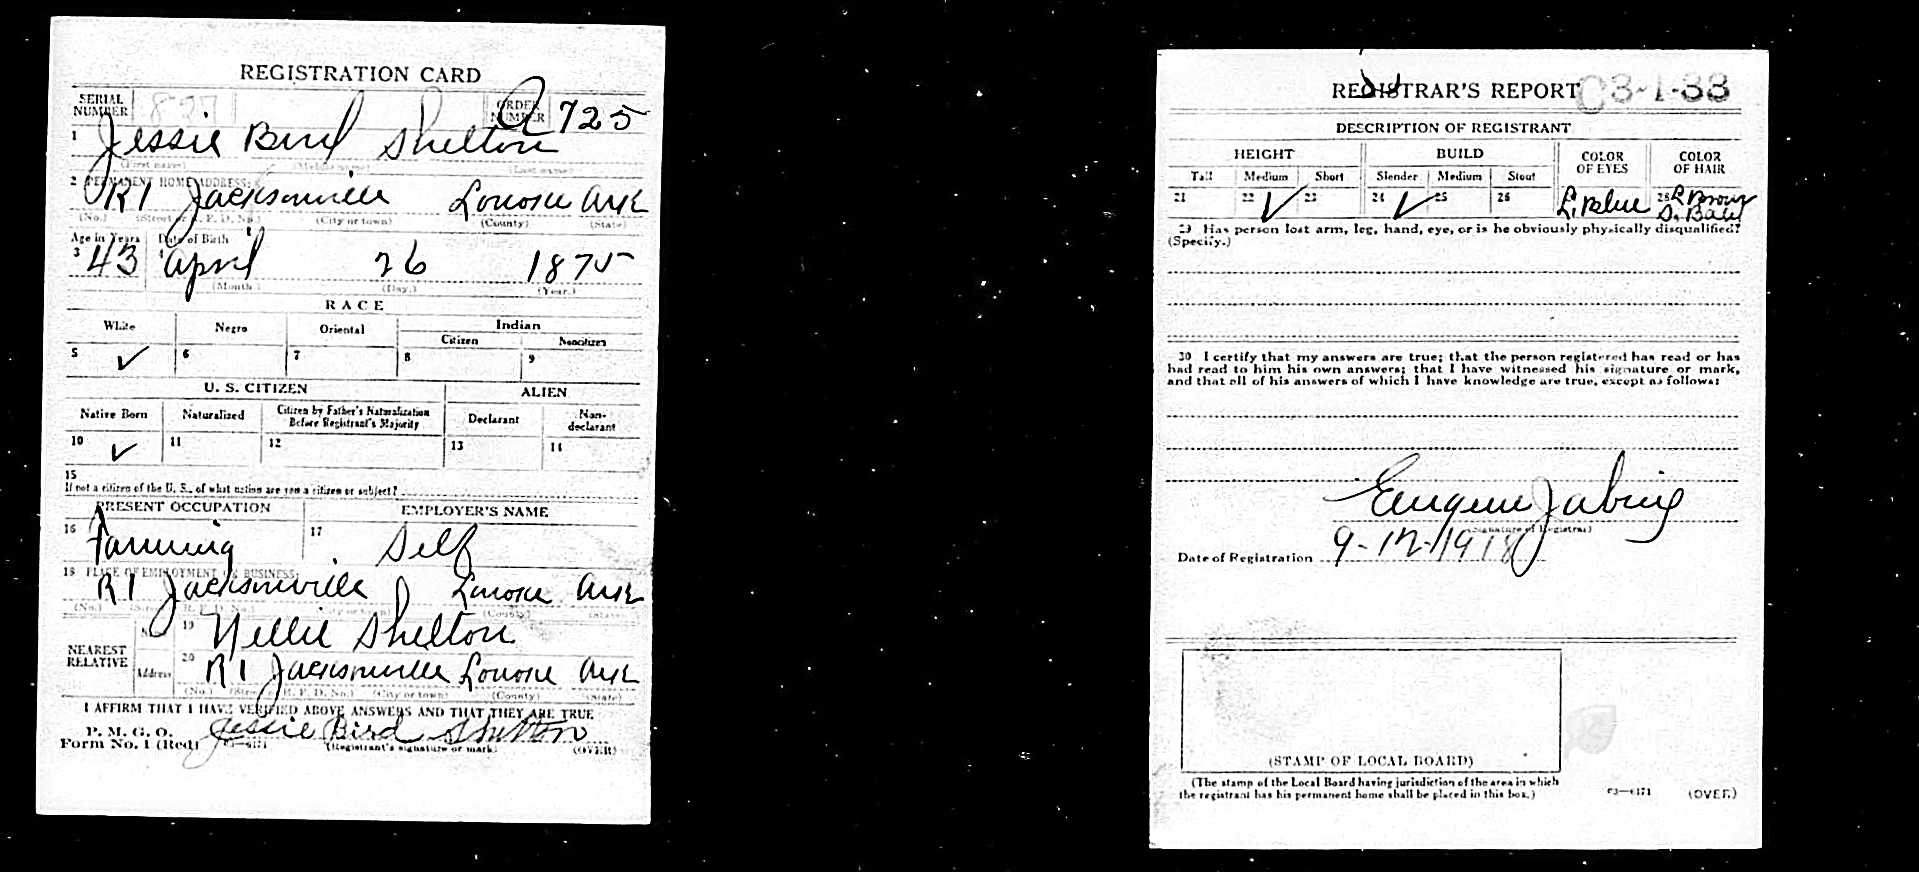 REGISTRATION CARD
SERIAL NUMBER 827 ORDER NUMBER A 725
1 Jessie Bird Shelton
(First name) (Middle name) (Last name)
2 PERMANENT HOME ADDRESS:
R 1 Jacksonville Lonoke Ark
(No.) (Street or R. F. D. No.) (City or town) (County) (State)
Age in Years Date of Birth
3 43 4 April 26 1875
(Month.) (Day.) (Year.)
RACE
White Negro Oriental Indian
Citizen Noncitizen
5 ✓ 6 7 8 9
U. S. CITIZEN ALIEN
Native Born Naturalized Citizen by Father's Naturalization Before Registrant's Majority Declarant Non-declarant
10 ✓ 11 12 13 14
15
If not a citizen of the U. S., of what nation are you a citizen or subject?
PRESENT OCCUPATION EMPLOYER'S NAME
16 Farming 17 Self
18 PLACE OF EMPLOYMENT OR BUSINESS:
R 1 Jacksonville Lonoke Ark
(No.) (Street or R. F. D. No.) (City or town) (County) (State)
NEAREST RELATIVE
19 Nellie Shelton
Address 20 R 1 Jacksonville Lonoke Ark
(No.) (Street or R. F. D. No.) (City or town) (County) (State)
I AFFIRM THAT I HAVE VERIFIED ABOVE ANSWERS AND THAT THEY ARE TRUE
P. M. G. O.
Form No. 1 (Red) 03—6171 Jessie Bird Shelton
(Registrant's signature or mark) (OVER)
REGISTRAR'S REPORT 03-1-33
DESCRIPTION OF REGISTRANT
HEIGHT BUILD COLOR OF EYES COLOR OF HAIR
Tall Medium Short Slender Medium Stout
21 22 ✓ 23 24 ✓ 25 26 L. Blue 28 L Brown
S. Bald
29 Has person lost arm, leg, hand, eye, or is he obviously physically disqualified?
(Specify.)
30 I certify that my answers are true; that the person registered has read or has
had read to him his own answers; that I have witnessed his signature or mark,
and that all of his answers of which I have knowledge are true, except as follows:
Eugene
(Signature of Registrar)
Date of Registration 9-12-1918
(STAMP OF LOCAL BOARD)
(The stamp of the Local Board having jurisdiction of the area in which
the registrant has his permanent home shall be placed in this box.)
03—6171 (OVER)